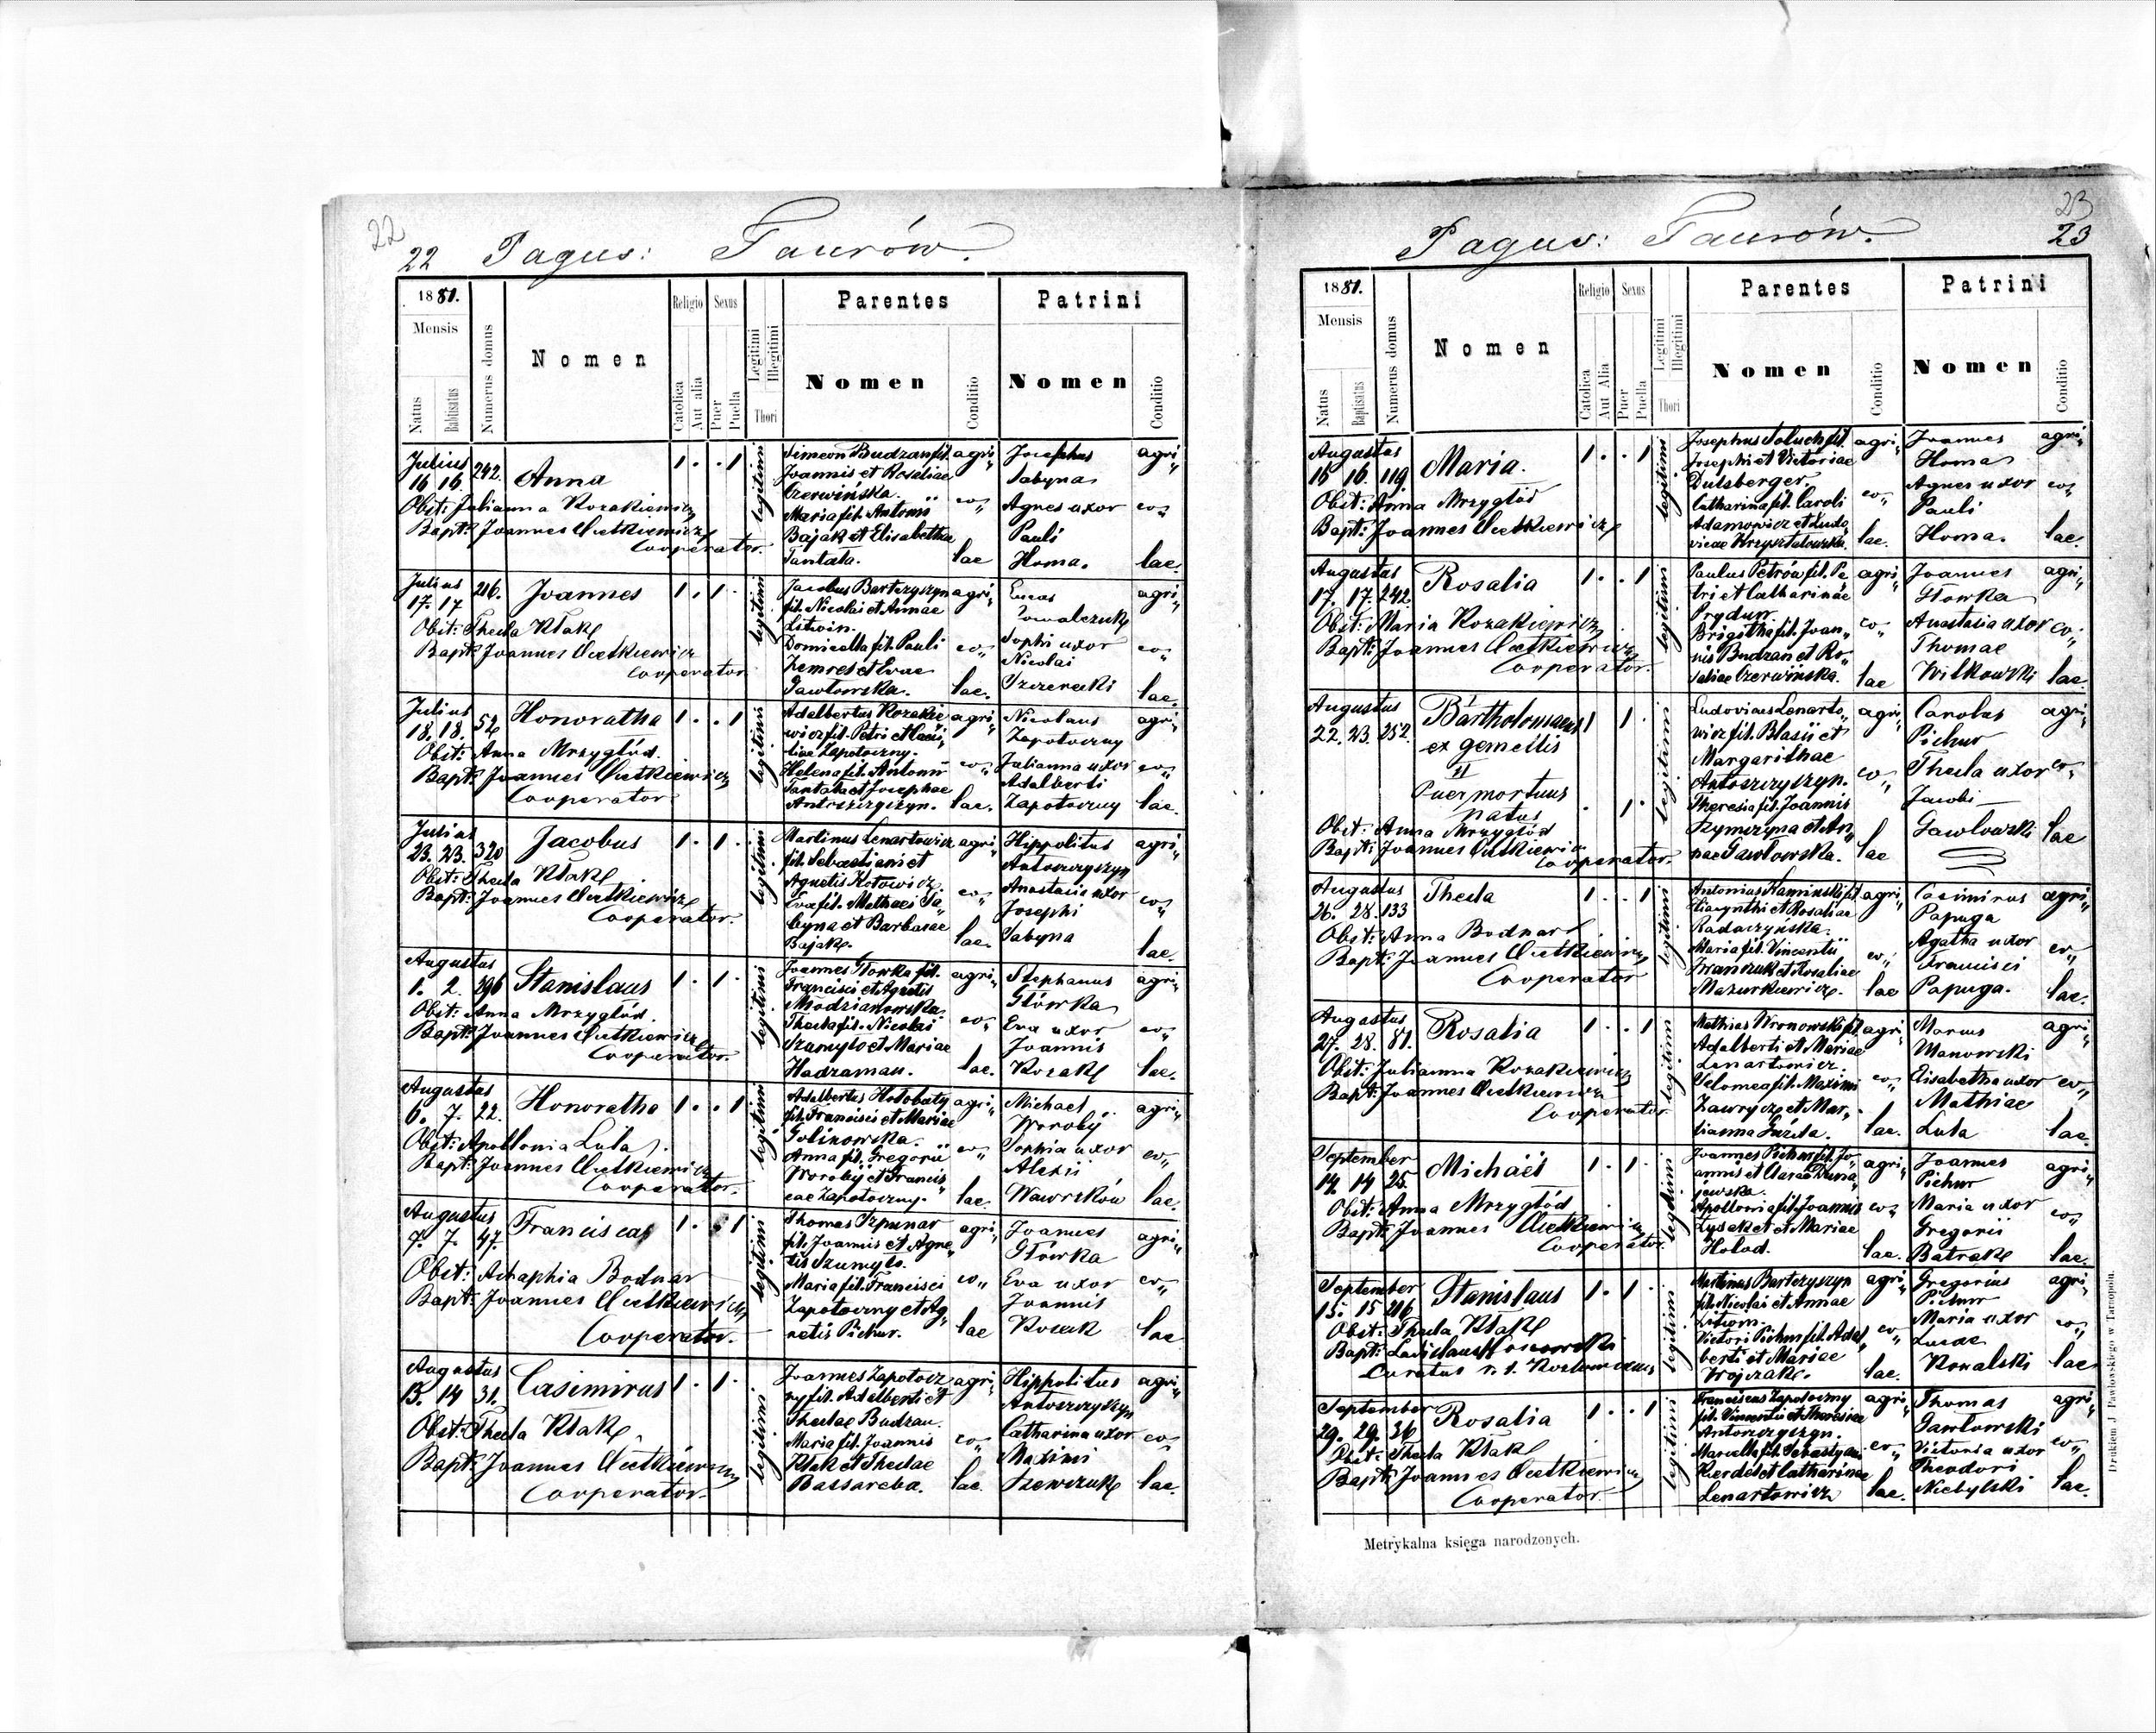 22
22 Pagus: Taurów.
1881.
Mensis
Natus
Babtisatus
Numerus domus
Nomen
Religio
Catolica
Aut alia
Sexus
Puer
Puella
Legitimi
Illegitimi
Thori
Parentes
Nomen
Conditio
Patrini
Nomen
Conditio
Julius
16 16 242. Anna 1 . . 1 legitimi
Obst: Julianna Kozakiewicz
Bapt: Joannes
Cooperator.
Simeon Budzan fil. agri„
Joannis et Rosaliae
Czerwińska.
Maria fil. Antonii co„
Bajak et Elisabetha
Tantala. lae
Josephus agri„
Sabyna
Agnes uxor co„
Pauli
Homa. lae.
Julius
17. 17 216. Joannes 1 . 1 . legitimi
Obst: Thecla Kłak
Bapt: Joannes
Cooperator
Jacobus Bartczyszyn agri„
fil. Nicolai et Annae
Litwin.
fil. Pauli co„
et Evae
Gawłowska. lae.
Lucas agri„
Kowalczuk
Sophi uxor co„
Nicolai
lae.
Julius
18. 18. 52 Honoratha 1 . . 1 legitimi
Obst: Anna Mrzygłód.
Bapt: Joannes
Cooperator
Adalbertus Kozakie„ agri„
wicz fil. Petri et
Zapotoczny.
Helena fil. Antonii co„
Tantala et Josephae
lae.
Nicolaus agri„
Zapotoczny
Julianna uxor co„
Adalberti
Zapotoczny lae.
Julius
23. 23. 320 Jacobus 1 . 1 . legitimi
Obst: Thecla Kłak.
Bapt: Joannes
Cooperator.
Martinus Lenartowicz agri„
fil. Sebastiani et
Agnetis Kotowicz.
Eva fil. Mathaei Sa„ co„
byna et Barbarae
Bajak. lae.
Hippolitus agri„
Antoszczyszyn
Anastasia uxor co„
Josephi
Sabyna lae.
Augustus
1. 2. 296 Stanislaus 1 . 1 . legitimi
Obst: Anna Mrzygłód.
Bapt: Joannes
Cooperator.
Joannes Głowka fil. agri„
Francisci et Agnetis
Modzianowska.
Thecla fil. Nicolai co„
Szamyło et Mariae
Hadzaman. lae.
Stephanus agri„
Główka
Eva uxor co„
Joannis
Kozak lae.
Augustus
6. 7. 22. Honoratha 1 . . 1 legitimi
Obst: Apollonia Luła.
Bapt: Joannes
Cooperator.
Adalbertus Hołobuty agri„
fil. Francisci et Mariae
Golinowska.
Anna fil. Gregorii co„
Woroby et Francis„
cae Zapotoczny. lae.
Michael agri„
Woroby
Sophia uxor co„
Alexii
Wawrków lae.
Augustus
7. 7. 47. Francisca 1 . . 1 legitimi
Obst: Bodnar
Bapt: Joannes
Cooperator.
Thomas Szpunar agri„
fil. Joannis et Agne„
tis Szumyło.
Maria fil. Francisci co„
Zapotoczny et Ag„
netis Pichur. lae
Joannes agri„
Głowka
Eva uxor co„
Joannis
Kozak lae
Augustus
13. 14 31. Casimirus 1 . 1 . legitimi
Obst: Thecla Kłak.
Bapt: Joannes
Cooperator.
Joannes Zapotocz„ agri„
ny fil. Adalberti et
Theclae Budzan.
Maria fil. Joannis co„
Kłak et Theclae
Bassareba. lae.
Hippolitus agri„
Antoszczyszyn
Catharina uxor co„
Maximi
Szewczuk lae.
23
23
Pagus: Taurów.
1881.
Mensis
Natus
Baptisatus
Numerus domus
Nomen
Religio
Catolica
Aut Alia
Sexus
Puer
Puella
Legitimi
Illegitimi
Thori
Parentes
Nomen
Conditio
Patrini
Nomen
Conditio
Augustus
16 16. 119. Maria. 1 . . 1 legitimi
Obst: Anna Mrzygłód
Bapt: Joannes
Josephus Soluch fil. agri„
Josephi et Victoriae
Dulsberger.
Catharina fil. Caroli co„
Adamowicz et Ludo„
vicae lae.
Joannes agri„
Homa
Agnes uxor co„
Pauli
Homa. lae.
Augustus
17. 17. 242. Rosalia 1 . . 1 legitimi
Obst: Maria Kozakiewicz
Bapt: Joannes
Cooperator.
Paulus Petrów fil. Pe„ agri„
tri et Catharinae
Prydun.
Brigitha fil. Joan„ co„
nis Budzan et Ro„
saliae Czerwińska. lae
Joannes agri„
Głowka
Anastasia uxor co„
Thomae
Witkowski lae.
Augustus
22. 23. 252. Bartholomaeus 1 . 1 . legitimi
ex gemellis
II
Puer mortuus
natus . 1 .
Obst: Anna Mrzygłód
Bapt: Joannes
Cooperator.
Ludovicus Lenarto„ agri„
wicz fil. Blasii et
Margarithae
Antoszczyszyn. co„
Theresia fil. Joannis
Szymczyna et An„
nae Gawłowska. lae
Carolus agri„
Pichur
Thecla uxor co„
Jacobi
Gawłowski lae
Augustus
26. 28. 133 Thecla 1 . . 1 legitimi
Obst: Anna Bodnar
Bapt: Joannes
Cooperator
Antonius Kaminski fil. agri„
Hiacynthi et Rosaliae
Radaczyńska.
Maria fil. Vincentii co„
Franczuk et Rosaliae
Mazurkiewicz. lae
Casimirus agri„
Papuga
Agatha uxor co„
Francisci
Papuga. lae.
Augustus
27. 28. 81. Rosalia 1 . . 1 legitimi
Obst: Julianna Kozakiewicz
Bapt: Joannes
Cooperator
Mathias Wronowski fil. agri„
Adalberti et Mariae
Lenartowicz.
Salomea fil. Maximi co„
Zawrycz et Mar„
lianna lae.
Marcus agri„
Manowski
Elisabetha uxor co„
Mathiae
Luła lae.
September
14. 14 25. Michaël 1 . 1 . legitimi
Obst: Anna Mrzygłód
Bapt: Joannes
Cooperator.
Joannes Pichur fil. Jo„ agri„
annis et Clarae Duna„
jewska.
Apollonia fil. Joannis co„
Łysak et et Mariae
Hołod. lae.
Joannes agri„
Pichur
Maria uxor co„
Gregorii
Batrak lae.
September
15. 15 216 Stanislaus 1 . 1 . legitimi
Obst: Thecla Kłak
Bapt: Ladislaus
Curatus r. l.
Martinus Bartczyszyn agri„
fil. Nicolai et Annae
Litwin.
Pichur fil. Adal„ co„
berti et Mariae
Wojczak. lae.
Gregorius agri„
Pichur
Maria uxor co„
Lucae
Kowalski lae
September
29. 29. 36 Rosalia 1 . . 1 legitimi
Obst: Thecla Kłak
Bapt: Joannes
Cooperator.
Franciscus Zapotoczny agri„
fil. Vincentii et Theresiae
Antoszczyszyn.
Marcella fil. co„
et Catharinae
Lenartowicz lae.
Thomas agri„
Gawłowski
Victoria uxor co„
Theodori
Niebylski lae.
Metrykalna księga narodzonych.
Drukiem J. Pawłowskiego w Tarnopolu.